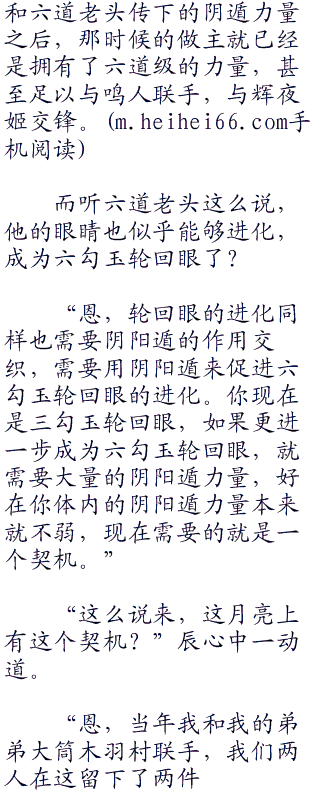 和六道老头传下的阴遁力量
之后，那时候的做主就已经
是拥有了六道级的力量，甚
至足以与鸣人联手，与辉夜
姬交锋。(m.heihei66.com手
机阅读)
而听六道老头这么说，
他的眼睛也似乎能够进化，
成为六勾玉轮回眼了？
“恩，轮回眼的进化同
样也需要阴阳遁的作用交
织，需要用阴阳遁来促进六
勾玉轮回眼的进化。你现在
是三勾玉轮回眼，如果更进
一步成为六勾玉轮回眼，就
需要大量的阴阳遁力量，好
在你体内的阴阳遁力量本来
就不弱，现在需要的就是一
个契机。”
“这么说来，这月亮上
有这个契机？”辰心中一动
道。
“恩，当年我和我的弟
弟大筒木羽村联手，我们两
人在这留下了两件